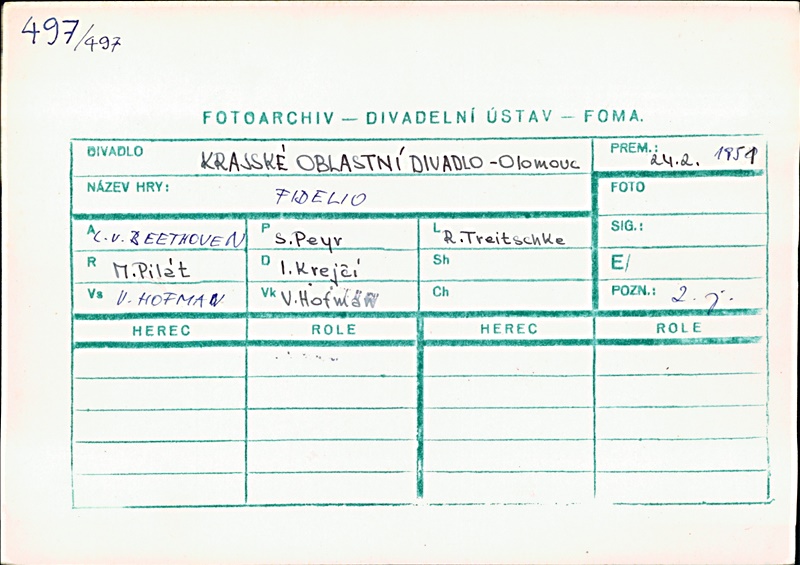 497/497
FOTOARCHIV — DIVADELNÍ ÚSTAV — FOMA.
DIVADLO KRAJSKÉ OBLASTNÍ DIVADLO-Olomouc PREM.: 24.2. 1951
NÁZEV HRY: FIDELIO FOTO
A L.v.BEETHOVEN P S.Peyr L R.Treitschke SIG.:
R M.Pilát D I.Krejčí Sh E/
Vs V.HOFMAN Vk V.Hofman Ch POZN.: 2. j.
HEREC ROLE HEREC ROLE